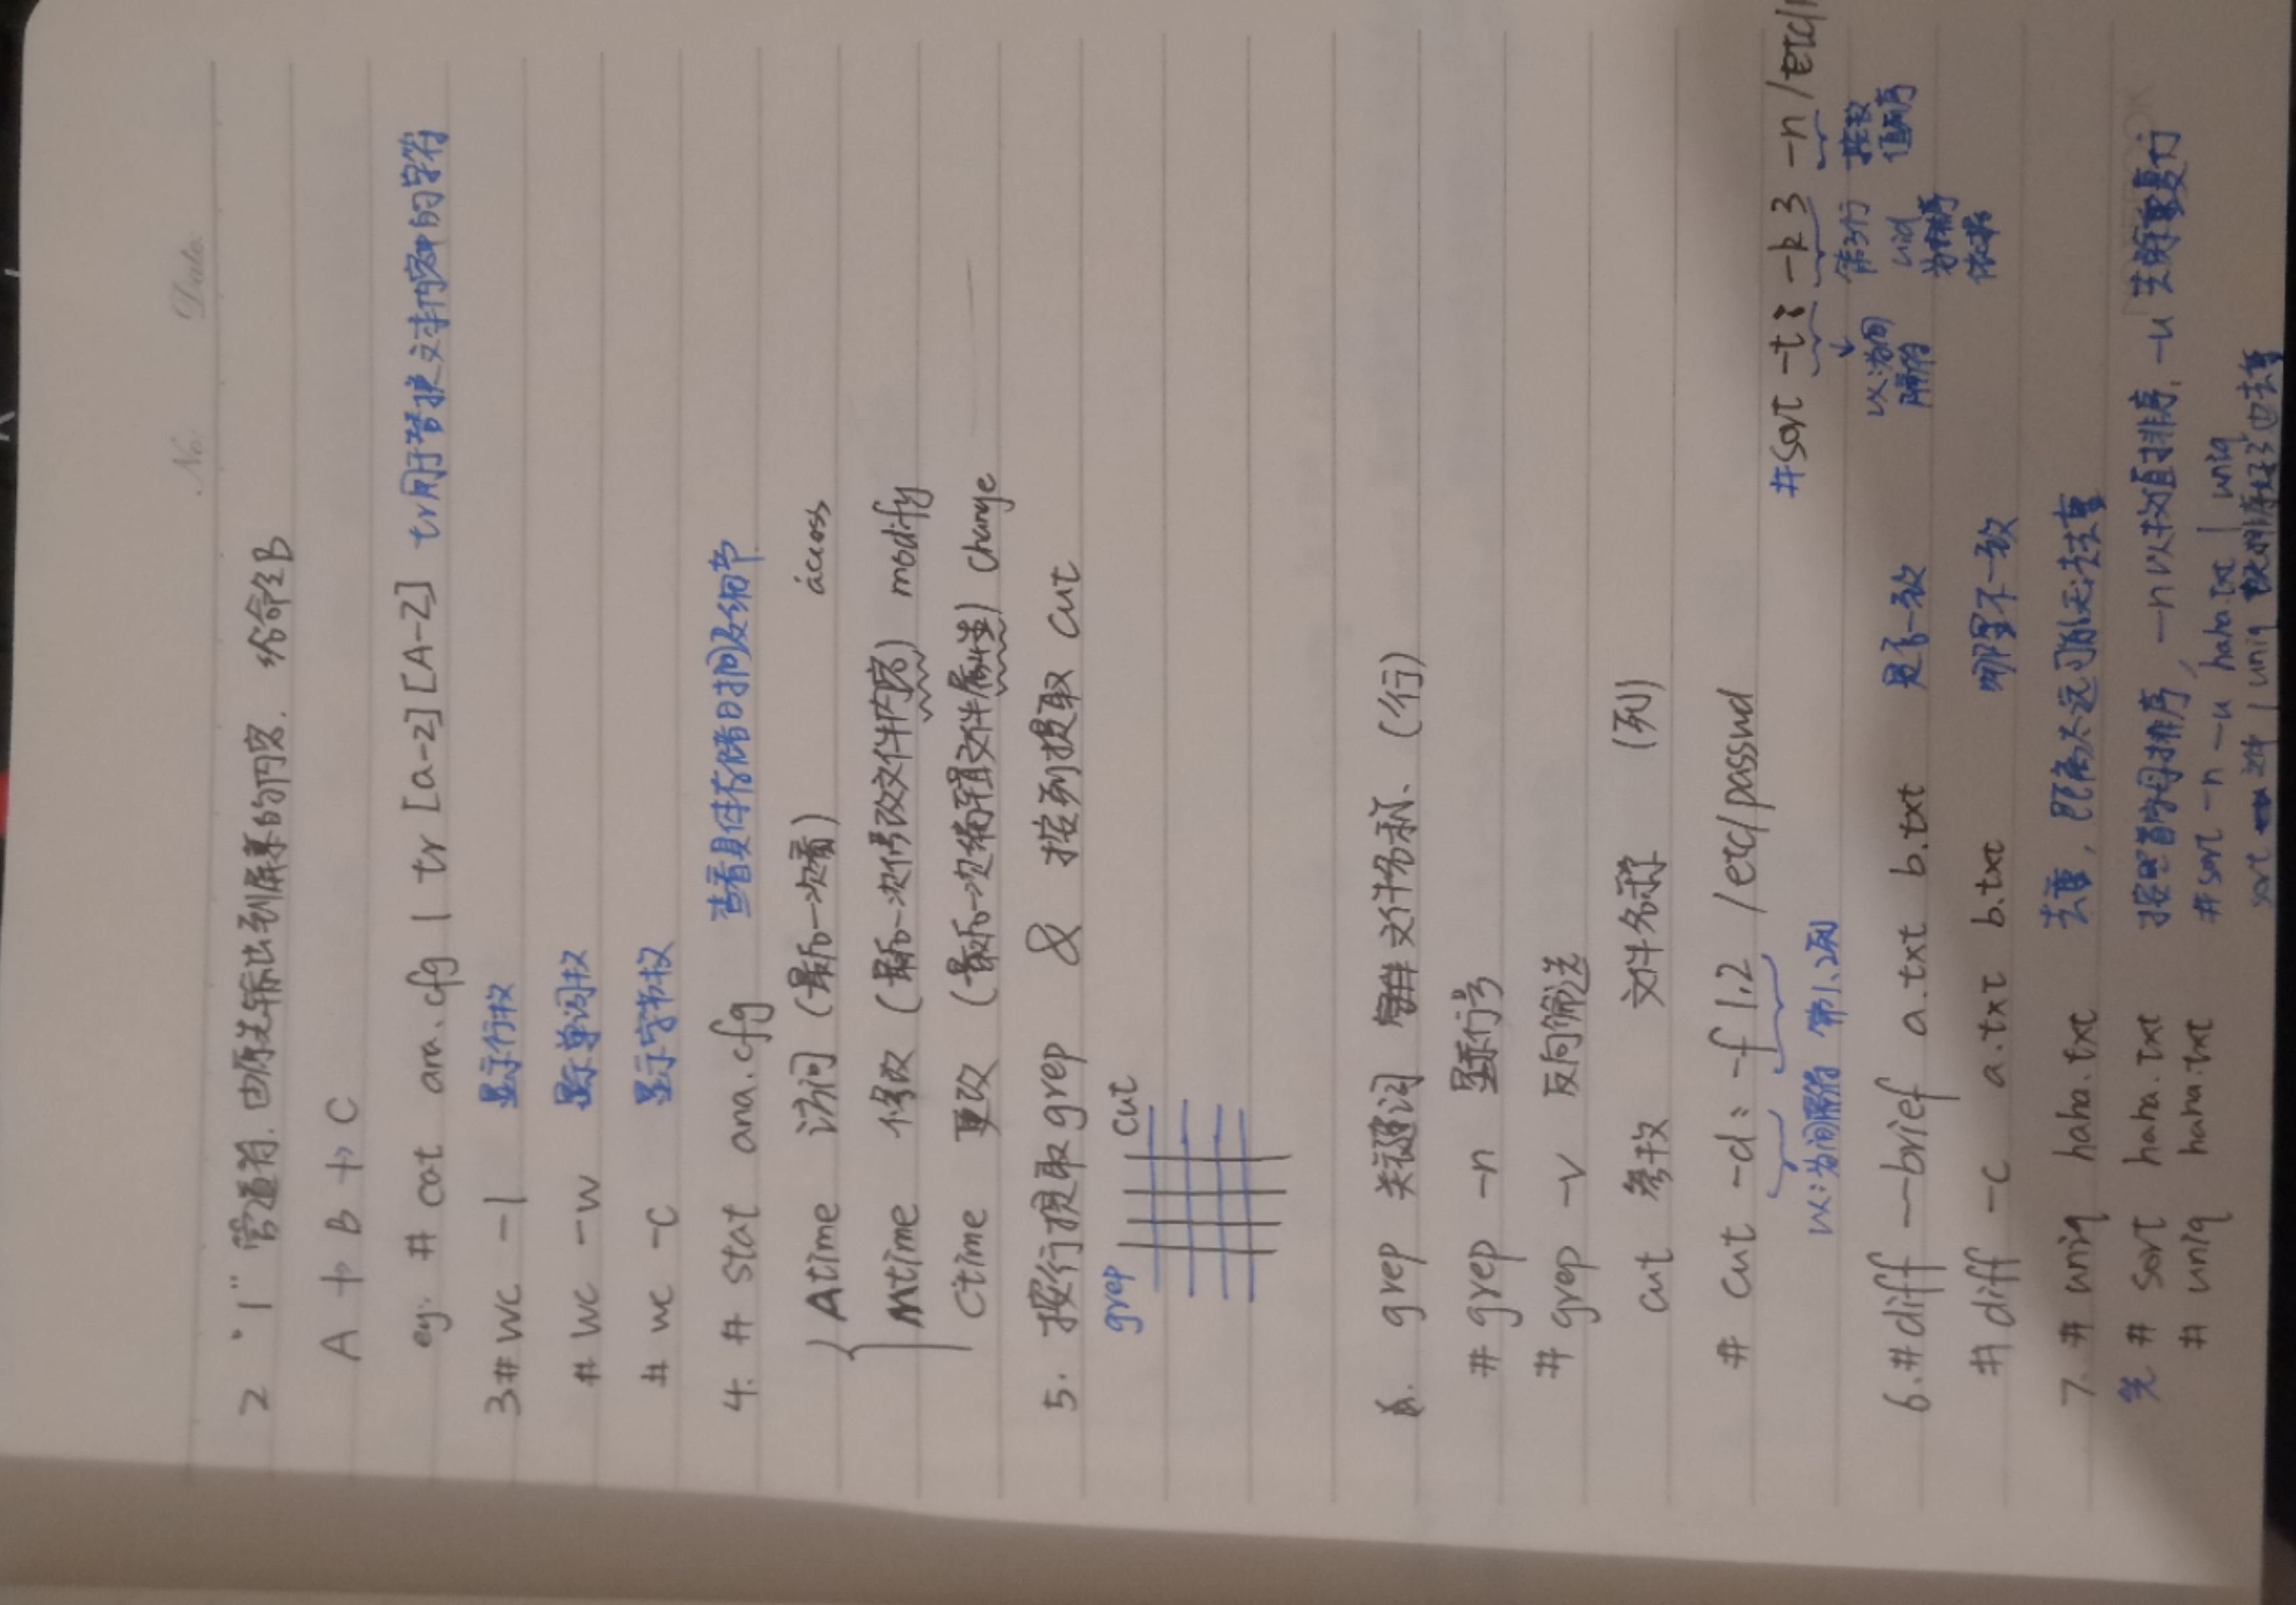 No: Date:
2 "|" 管道符. 由原先输出到屏幕的内容. 给命令B
A → B → C
eg: # cat ana.cfg | tr [a-z] [A-Z] tr用于替换文本内容中的字符
3 # wc -l 显示行数
# wc -w 显示单词数
# wc -c 显示字节数
4. # stat ana.cfg 查看具体存储时间及细节
Atime 访问 (最后一次看) access
Mtime 修改 (最后一次修改文件内容) modify
Ctime 更改 (最后一次编辑文件属性) change
5. 按行提取 grep & 按列提取 cut
grep cut
grep 关键词 文件名称. (行)
# grep -n 显示行号
# grep -v 反向筛选
cut 参数 文件名称 (列)
# cut -d: -f 1,2 /etc/passwd
以:为间隔符 第1、2列
#sort -t: -k 3 -n /etc/
以:为间隔符
第3行 uid 为排序依据
按数值排序
6. # diff --brief a.txt b.txt 是否一致
# diff -c a.txt b.txt 哪里不一致
7. # uniq haha.txt 去重, 距离太远可能无法去重
先 # sort haha.txt 按照首字母排序, -n 以数值排序, -u 去除重复行
# uniq haha.txt
#sort -n -u haha.txt | uniq
sort 文件 | uniq 既排序好了也去重
NOTEBOOK